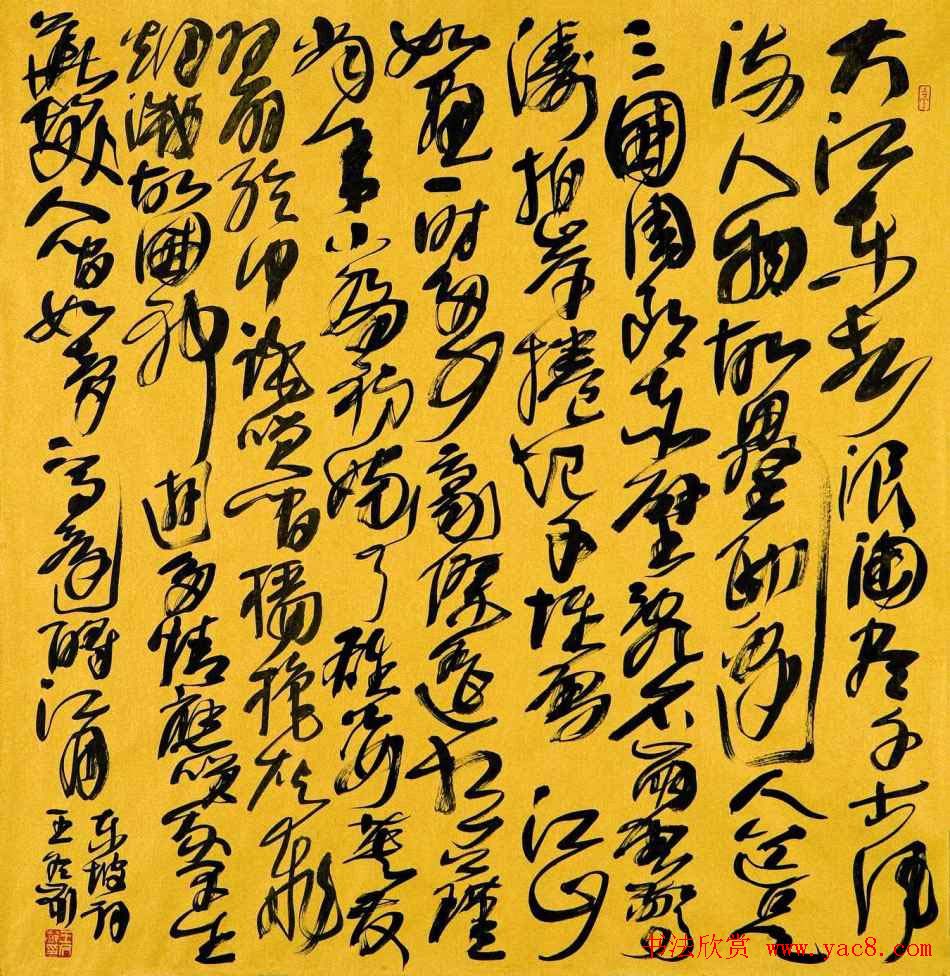 大江东去浪淘尽千古风
流人物故垒西边人道是
三国周郎赤壁乱石崩云惊
涛拍岸捲起千堆雪江山
如画一时多少豪傑遥想公瑾
当年小乔初嫁了雄姿英发
羽扇纶巾谈笑间樯橹灰飞
烟灭故国神游多情应笑我早生
华发人间如梦一尊还酹江月
东坡词
书法欣赏 www.yac8.com